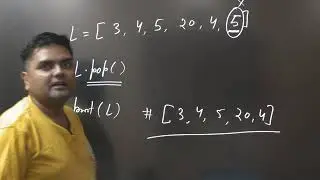 L = [ 3, 4, 5, 20, 4, 5 ]
L.pop()
(L) # [3, 4, 5, 20, 4]